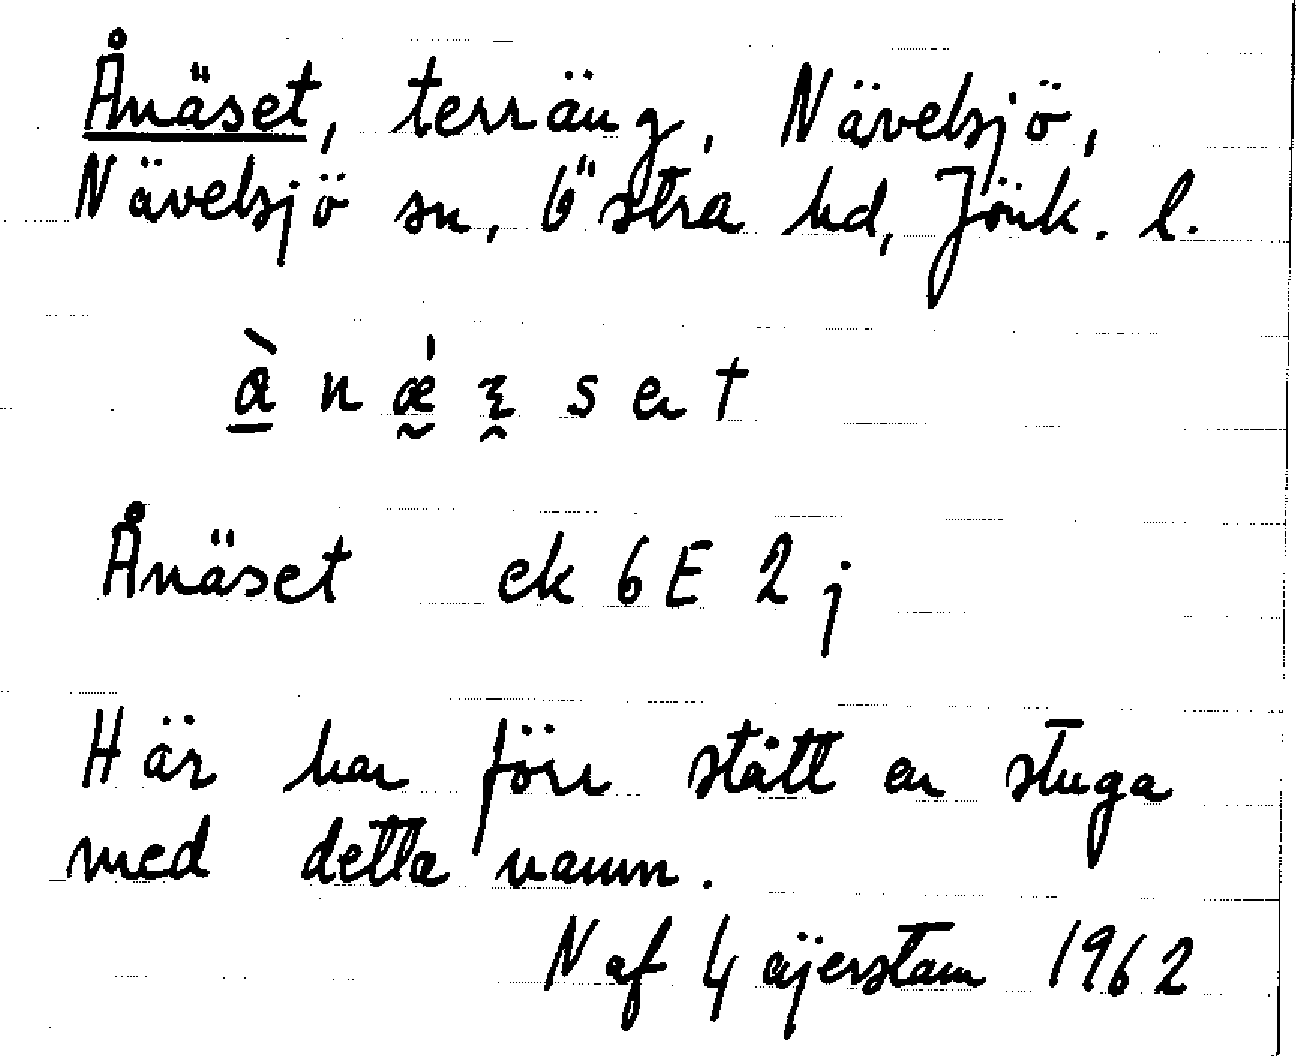 Ånäset, terräng, Nävelsjö,
Nävelsjö sn, Östra hd, Jönk. l.
Ånäset ek 6E 2j
Här har förr stått en stuga
med detta namn.
N af Gäijerstam 1962